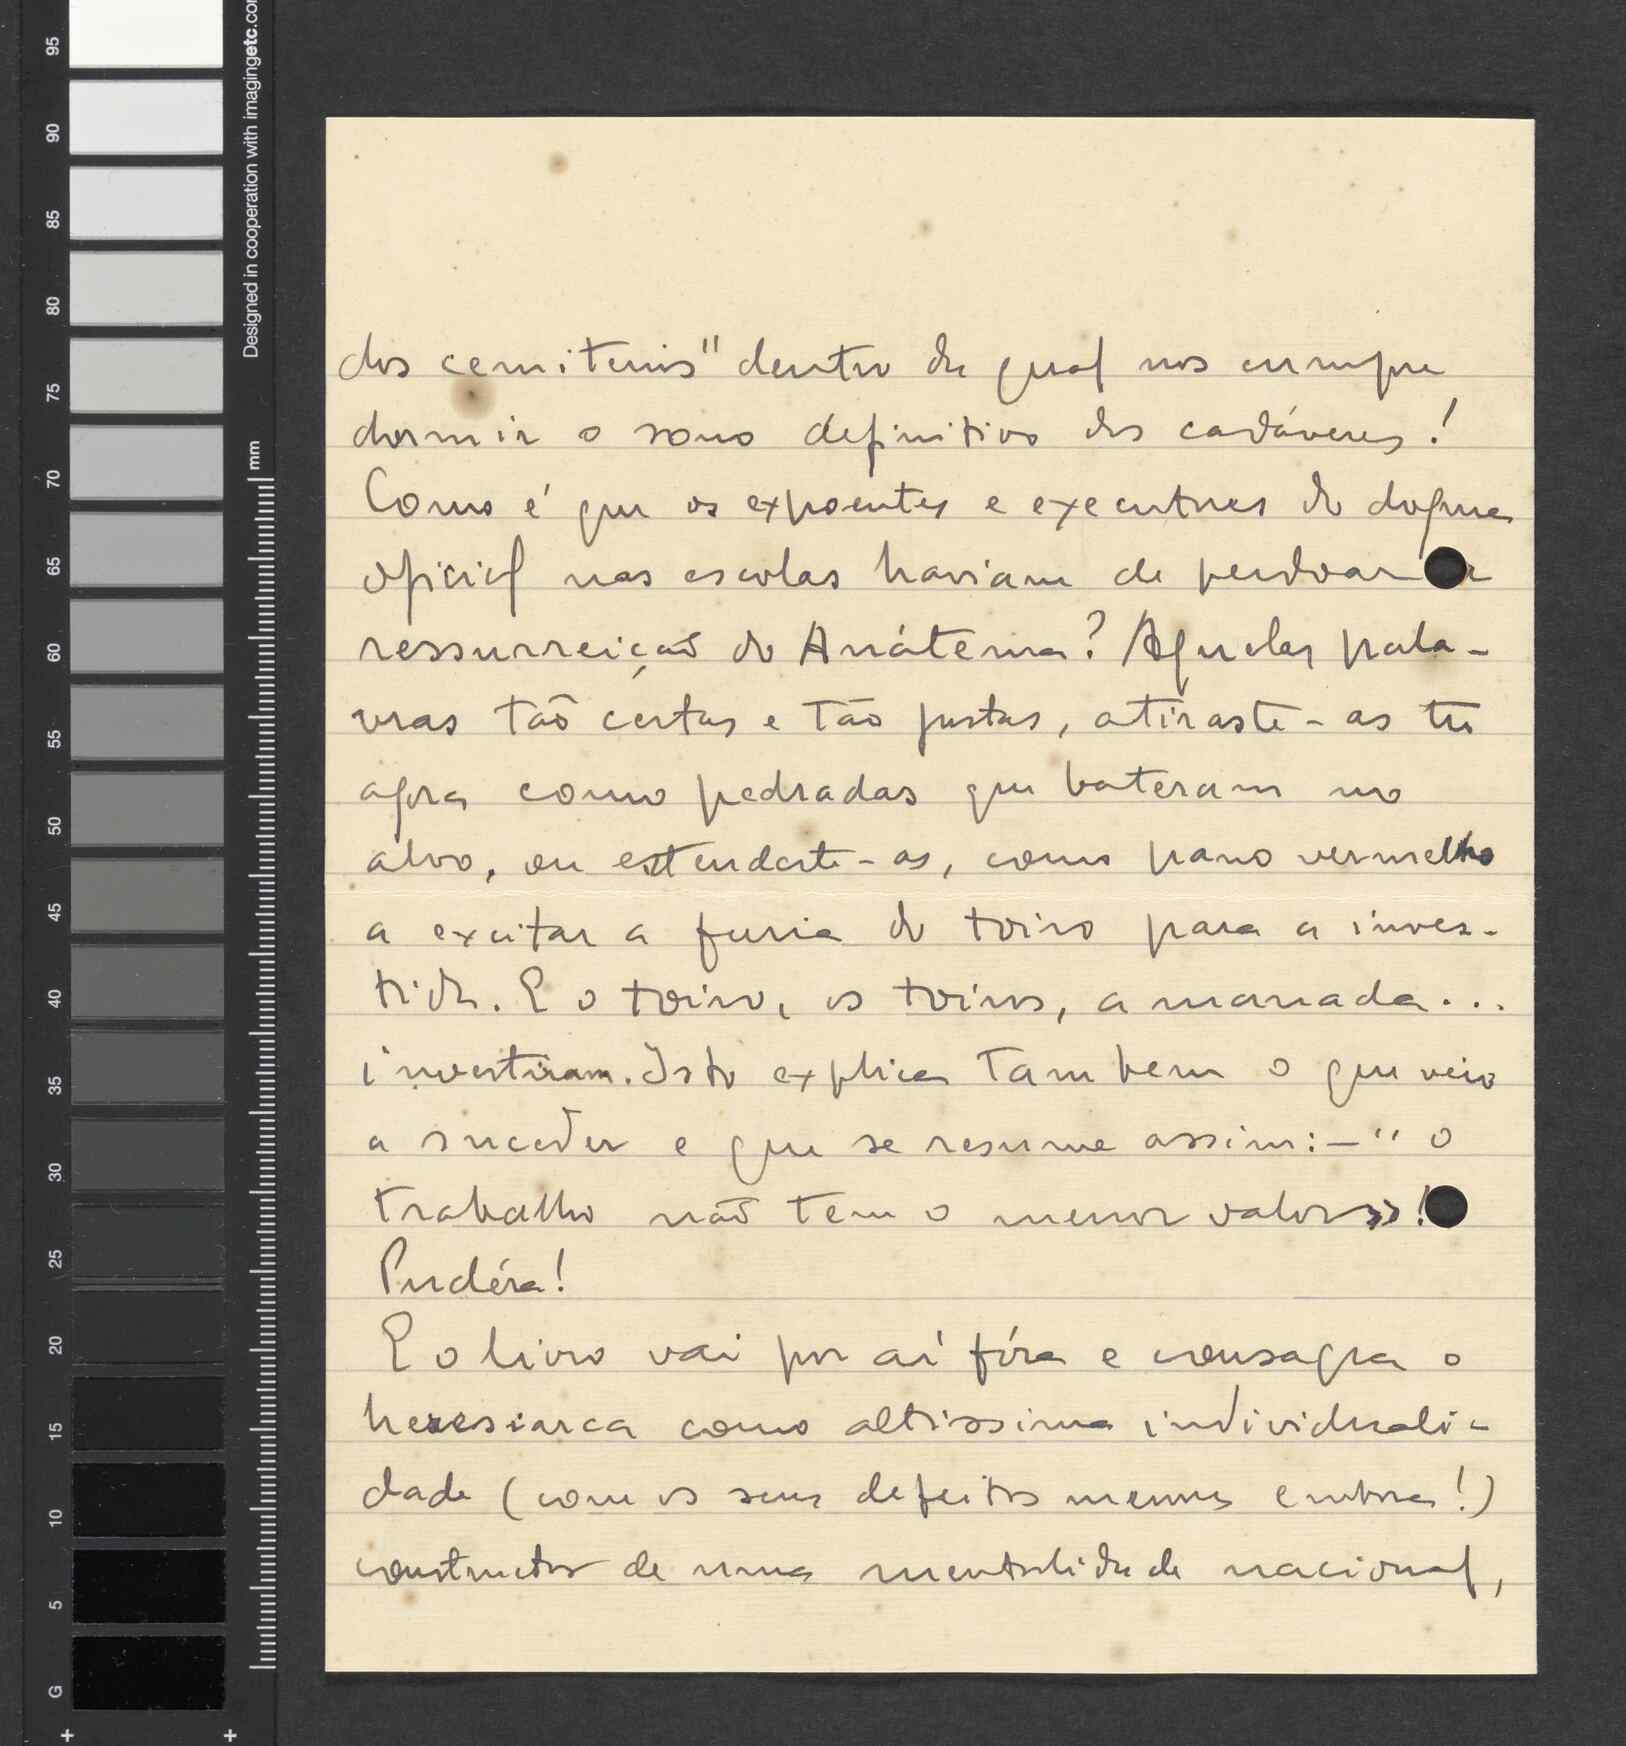 95
90
85
80
75
70
65
60
55
50
45
40
35
30
25
20
15
10
5
G
Designed in cooperation with imagingetc.com
mm
dos cemiterios" dentro da qual nos cumpre
dormir o sono definitivo dos cadáveres!
Como é que os expoentes e executores do dogma
oficial nas escolas haviam de perdoar a
ressurreição do Anátema? Aquelas pala-
vras tão certas e tão justas, atiraste-as tu
agora como pedradas que bateram no
alvo, ou estendeste-as, como pano vermelho
a excitar a furia do toiro para a inves-
tida. E o toiro, os toiros, a manada...
investiram. Isto explica tambem o que veio
a suceder e que se resume assim: - " o
trabalho não tem o menor valor»!
Pudéra!
E o livro vai por aí fóra e consagra o
heresiarca como altissima individuali-
dade (com os seus defeitos menores embora!)
constructor de uma mentalidade nacional,